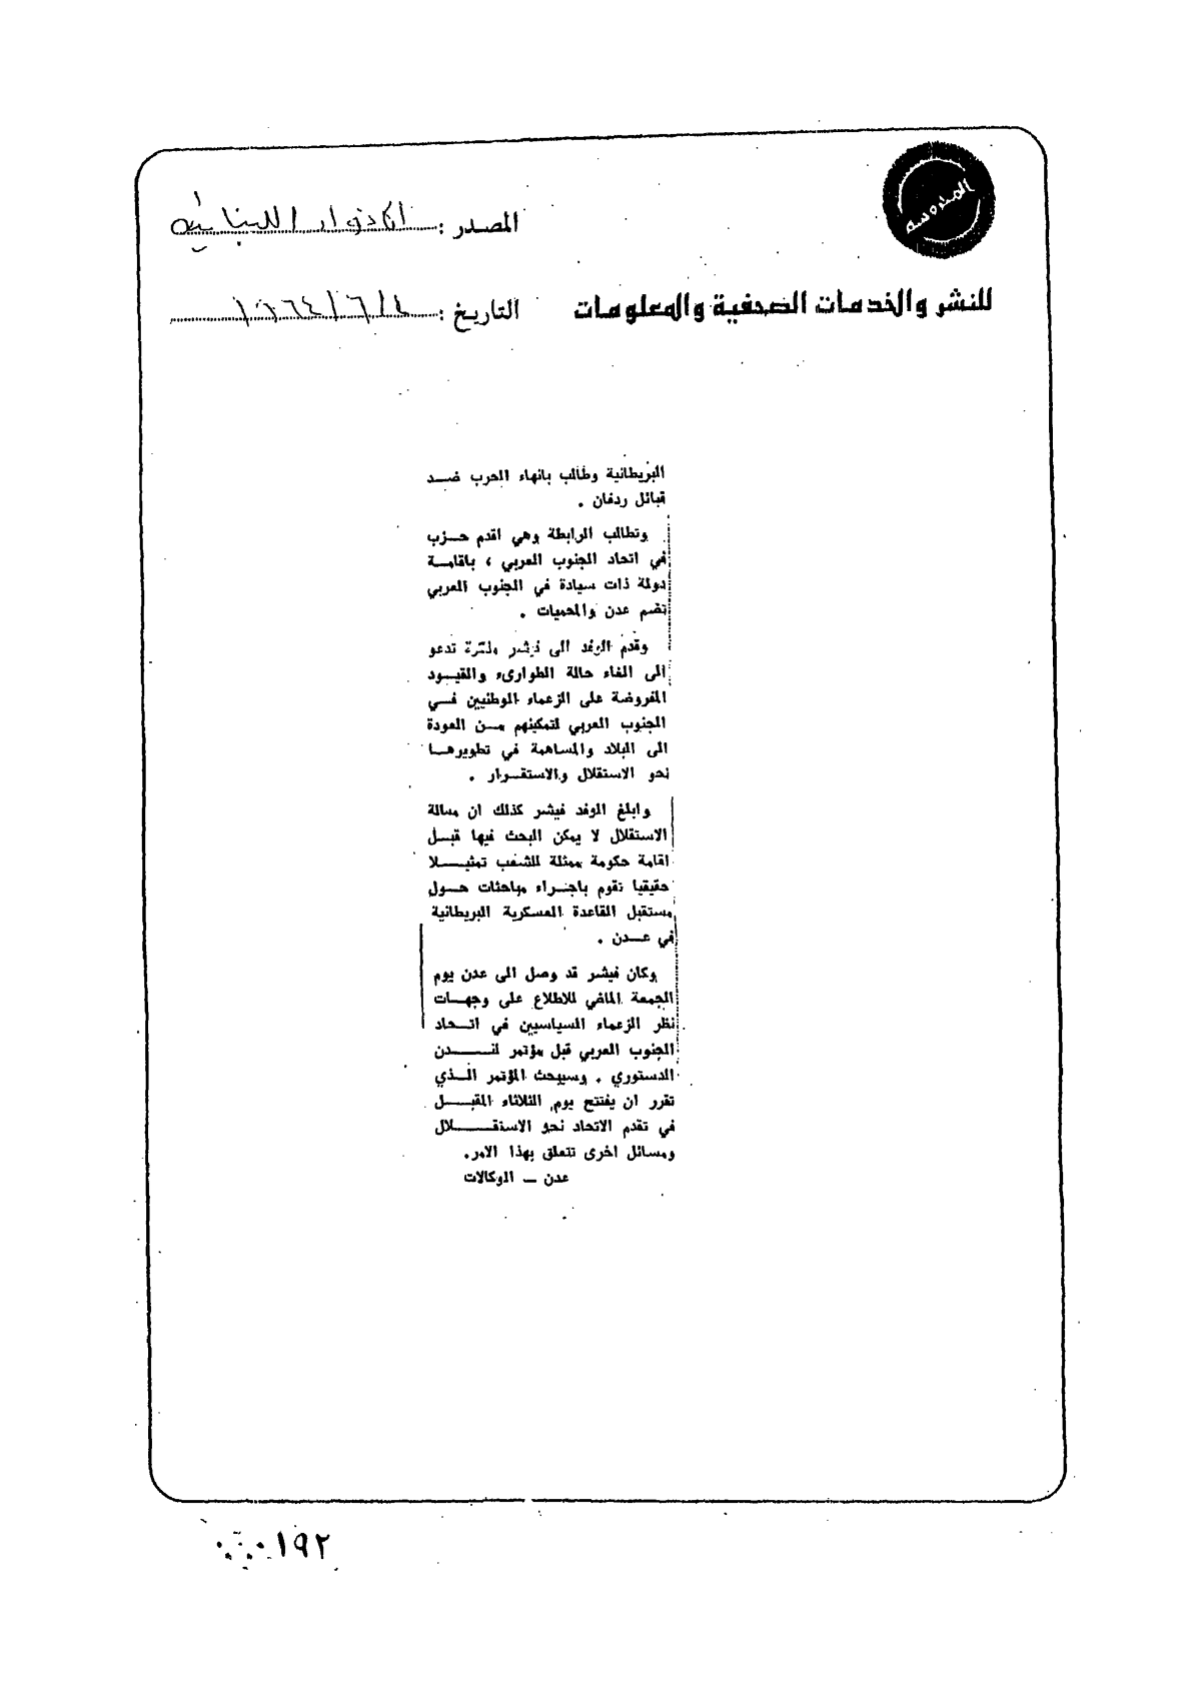 المصدر : الانوار اللبنانيه
للنشر والخدمات الصحفية والمعلومات
التاريخ : ١٩٦٤/٦/٤
البريطانية وطالب بانهاء الحرب ضـد
قبائل ردفان .
وتطالب الرابطة وهي اقدم حـزب
في اتحاد الجنوب العربي ، باقامـة
دولة ذات سيادة في الجنوب العربي
تضم عدن والمحميات .
وقدم الوفد الى فيشر مذكرة تدعو
الى الغاء حالة الطوارىء والقيـود
المفروضة على الزعماء الوطنيين فـي
الجنوب العربي لتمكينهم مـن العودة
الى البلاد والمساهمة في تطويرهـا
نحو الاستقلال والاستقـرار .
وابلغ الوفد فيشر كذلك ان مسالة
الاستقلال لا يمكن البحث فيها قبـل
اقامة حكومة ممثلة للشعب تمثيـلا
حقيقيا تقوم باجـراء مباحثات حـول
مستقبل القاعدة العسكرية البريطانية
في عـدن .
وكان فيشر قد وصل الى عدن يوم
الجمعة الماضي للاطلاع على وجهـات
نظر الزعماء السياسيين في اتـحاد
الجنوب العربي قبل مؤتمر لنـدن
الدستوري . وسيبحث المؤتمر الـذي
تقرر ان يفتتح يوم الثلاثاء المقبـل
في تقدم الاتحاد نحو الاستقـلال
ومسائل اخرى تتعلق بهذا الامر.
عدن ــ الوكالات
١٩٢